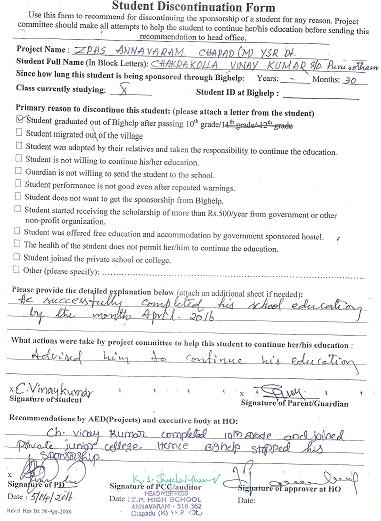 Student Discontinuation Form
Use this form to recommend for discontinuing the sponsorship of a student for any reason. Project
committee should make all attempts to help the student to continue her/his education before sending this
recommendation to head office.
Project Name : ZPHS ANNAVARAM CHAPAD (M) YSR Dt.
Student Full Name (In Block Letters): CHAKRAKOLLA VINAY KUMAR S/o
Since how long this student is being sponsored through Bighelp: Years: - Months: 30
Class currently studying: 8 Student ID at Bighelp :
Primary reason to discontinue this student: (please attach a letter from the student)
Student graduated out of Bighelp after passing 10th grade/11th grade/12th grade
Student migrated out of the village
Student was adopted by their relatives and taken the responsibility to continue the education.
Student is not willing to continue his/her education.
Guardian is not willing to send the student to the school.
Student performance is not good even after repeated warnings.
Student does not want to get the sponsorship from Bighelp.
Student started receiving the scholarship of more than Rs.500/year from government or other
non-profit organization.
Student was offered free education and accommodation by government sponsored hostel.
The health of the student does not permit her/him to continue the education.
Student joined the private school or college.
Other (please specify):
Please provide the detailed explanation below (attach an additional sheet if needed):
He successfully completed his school education
by the months April - 2016
What actions were take by project committee to help this student to continue her/his education :
Advised him to continue his education
x C. Vinay kumar
Signature of Student Signature of Parent/Guardian
Recommendations by AED(Projects) and executive body at HO:
Ch. vinay kumar completed 10th grade and joined
private junior college. Hence Bighelp stopped his
sponsorship.
Signature of PD Signature of PCC/auditor Signature of approver at HO
Date : 5/04/2016 Date : HEAD MISTRESS Date :
Z.P. HIGH SCHOOL
ANNAVARAM - 516 362
Chapadu (M) Y.S.R Dt.